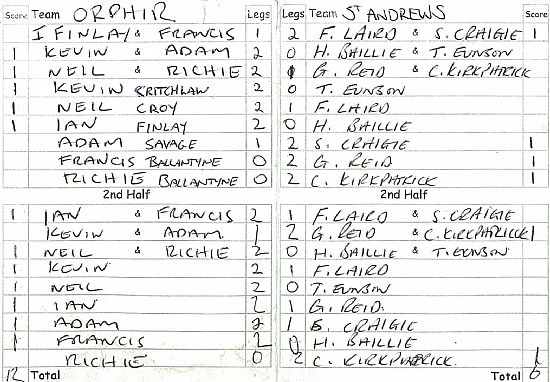 Score Team ORPHIR Legs Legs Team ST ANDREWS Score
I FINLAY & FRANCIS 1 2 F. LAIRD & S. CRAIGIE 1
1 KEVIN & ADAM 2 0 H. BAILLIE & T. EUNSON
1 NEIL & RICHIE 2 G. REID & C. KIRKPATRICK
1 KEVIN CRITCHLAW 2 0 T. EUNSON
1 NEIL CROY 2 1 F. LAIRD
1 IAN FINLAY 2 0 H. BAILLIE
ADAM SAVAGE 1 2 S. CRAIGIE 1
FRANCIS BALLANTYNE 0 2 G. REID 1
RICHIE BALLANTYNE 0 2 C. KIRKPATRICK 1
2nd Half 2nd Half
1 IAN & FRANCIS 2 1 F. LAIRD & S. CRAIGIE
KEVIN & ADAM 1 2 G. REID & C. KIRKPATRICK 1
1 NEIL & RICHIE 2 0 H. BAILLIE & T. EUNSON
1 KEVIN 2 1 F. LAIRD
1 NEIL 2 0 T. EUNSON
1 IAN 2 1 G. REID.
1 ADAM 2 1 S. CRAIGIE
1 FRANCIS 2 0 H. BAILLIE
RICHIE 0 2 C. KIRKPATRICK. 1
12 Total Total 6